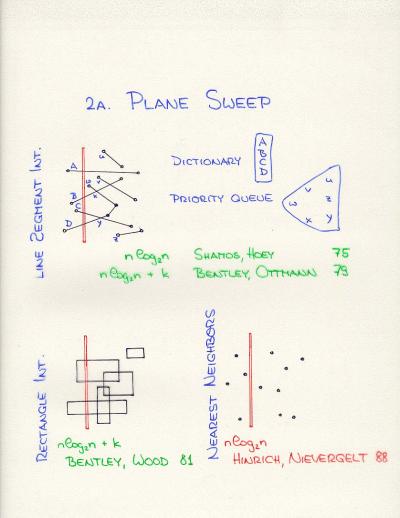 2a. PLANE SWEEP
LINE SEGMENT INT.
A
B
C
D
u
v
w
x
y
z
DICTIONARY
A
B
C
D
PRIORITY QUEUE
u
v
w
z
x
y
n log₂n SHAMOS, HOEY 75
n log₂n + k BENTLEY, OTTMANN 79
RECTANGLE INT.
n log₂n + k
BENTLEY, WOOD 81
NEAREST NEIGHBORS
n log₂n
HINRICH, NIEVERGELT 88